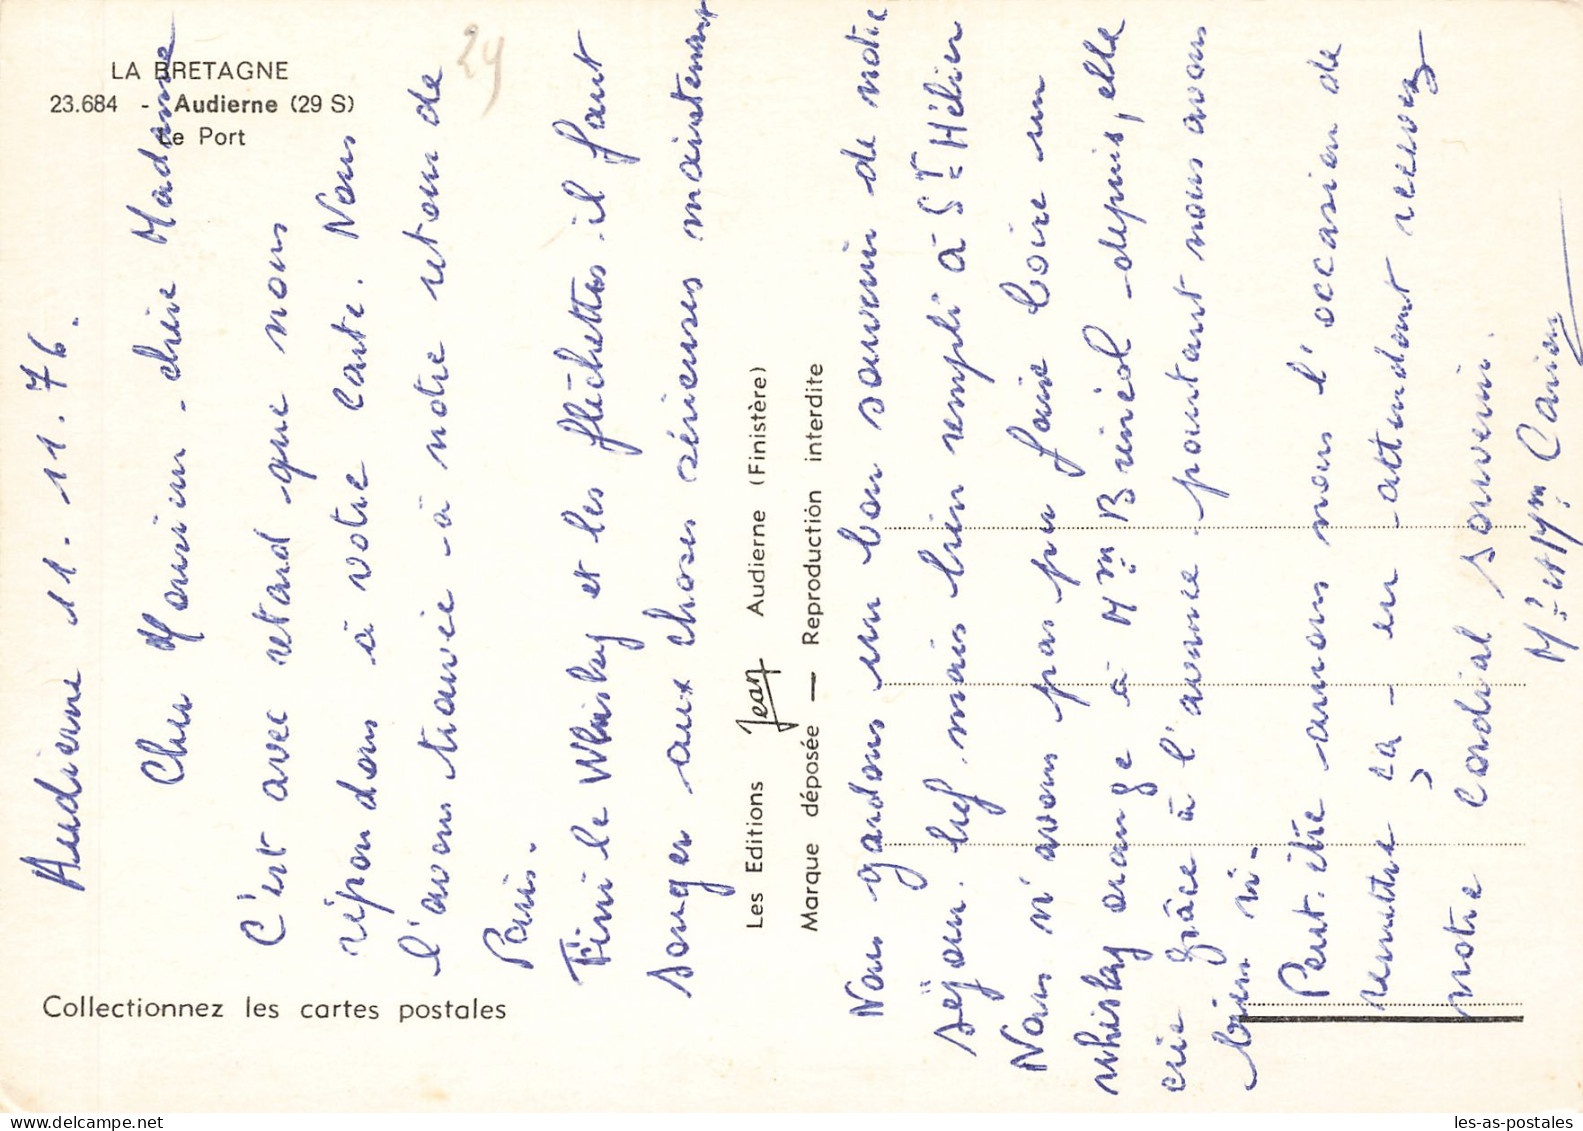 LA BRETAGNE
23.684 - Audierne (29 S)
Le Port
29
Audierne 11.11.76.
Cher Monsieur - chère Madame
C'est avec retard que nous
répondons à votre carte. Nous
l'avons trouvée - à notre retour de
Paris.
Fini le Whisky et les fléchettes - il faut
songer aux choses sérieuses maintenant
Les Editions Jean Audierne (Finistère)
Marque déposée — Reproduction interdite
Nous gardons un bon souvenir de notre
séjour. bref mais bien rempli à St Hélier
Nous n'avons pas pu faire boire un
whisky orange à Mme Brinéol - depuis, elle
crie grâce à l'avance - pourtant nous avons
bien ri.
Peut-être aurons nous l'occasion de
remettre ça - en attendant recevez
notre cordial souvenir.
Mr et Mme
Collectionnez les cartes postales
les-as-postales